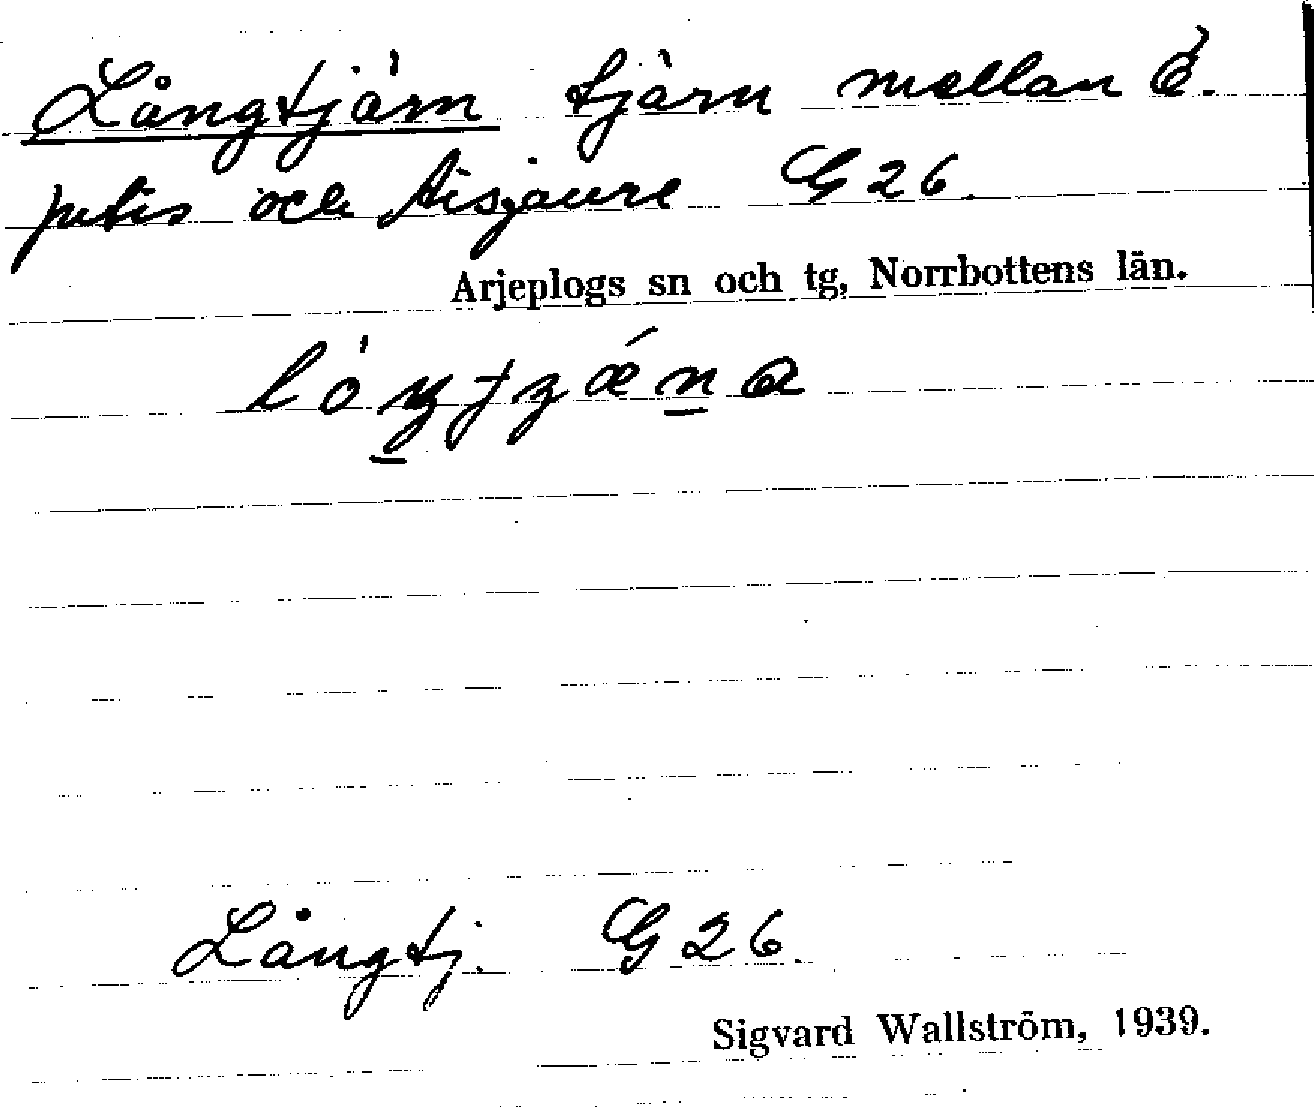 Långtjärn tjärn mellan Ö.
jutis och Aisjaure G 26.
Arjeplogs sn och tg, Norrbottens län.
Långtj. G 26.
Sigvard Wallström, 1939.